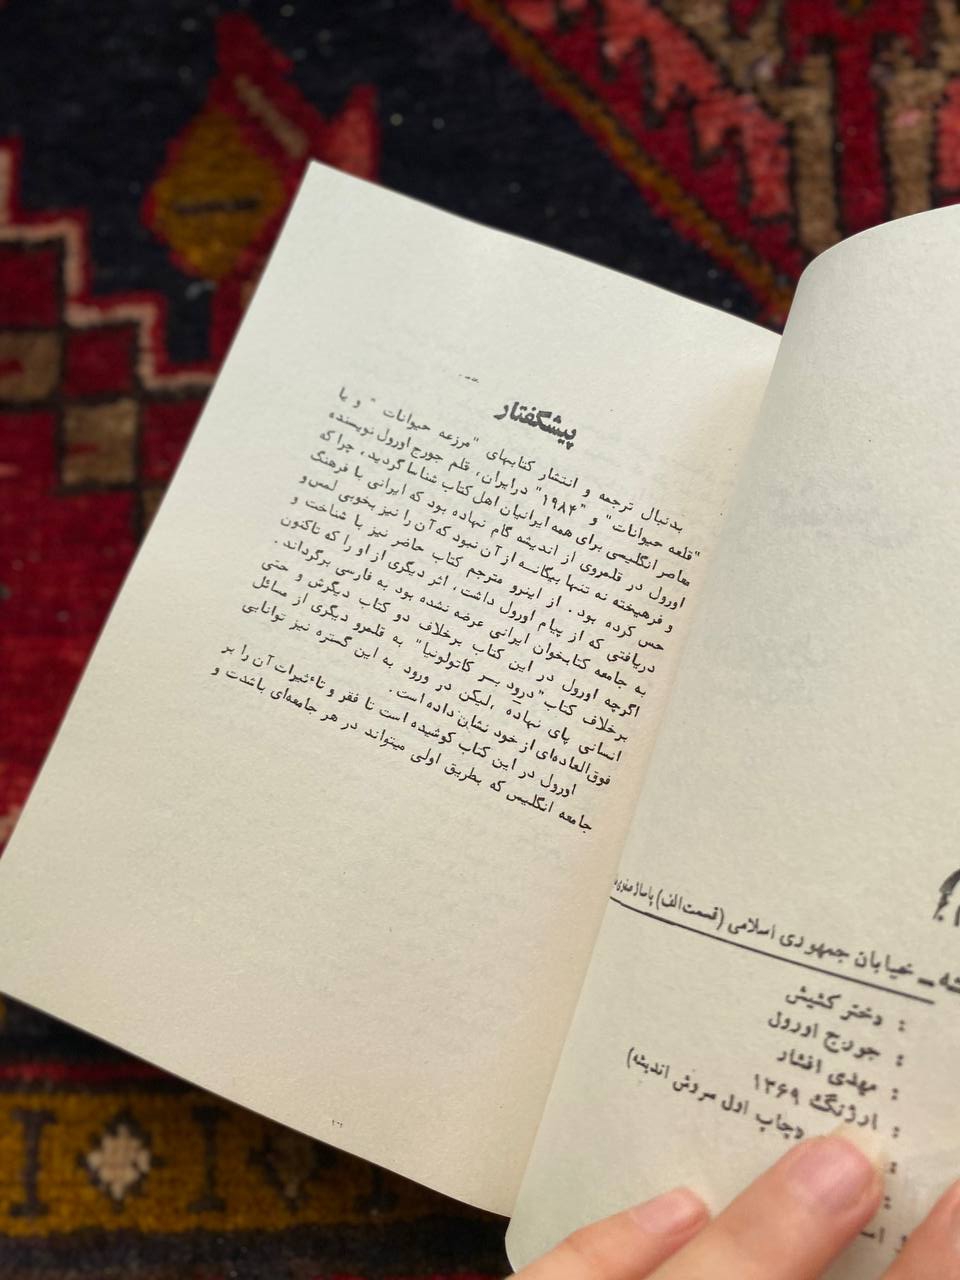 پیشگفتار
بدنبال ترجمه و انتشار کتابهای "مرزعه حیوانات" و یا
"قلعه حیوانات" و "۱۹۸۴" درایران، قلم جورج اورول نویسنده
معاصر انگلیسی برای همه ایرانیان اهل کتاب شناسا گردید، چرا که
اورول در قلمروی از اندیشه گام نهاده بود که ایرانی با فرهنگ
و فرهیخته نه تنها بیگانه از آن نبود که آن را نیز بخوبی لمس و
حس کرده بود. از اینرو مترجم کتاب حاضر نیز با شناخت و
دریافتی که از پیام اورول داشت، اثر دیگری از او را که تاکنون
به جامعه کتابخوان ایرانی عرضه نشده بود به فارسی برگرداند.
اگرچه اورول در این کتاب برخلاف دو کتاب دیگرش و حتی
برخلاف کتاب "درود بر کاتولونیا" به قلمرو دیگری از مسائل
انسانی پای نهاده، لیکن در ورود به این گستره نیز توانایی
فوق‌العاده‌ای از خود نشان داده است.
اورول در این کتاب کوشیده است تا فقر و تاءثیرات آن را بر
جامعه انگلیس که بطریق اولی میتواند در هر جامعه‌ای باشدت و
خیابان جمهوری اسلامی (قسمت الف) پاساژ صفوی
: دختر کشیش
: جورج اورول
: مهدی افشار
: ارژنگ ۱۳۶۹
چاپ اول سروش اندیشه)